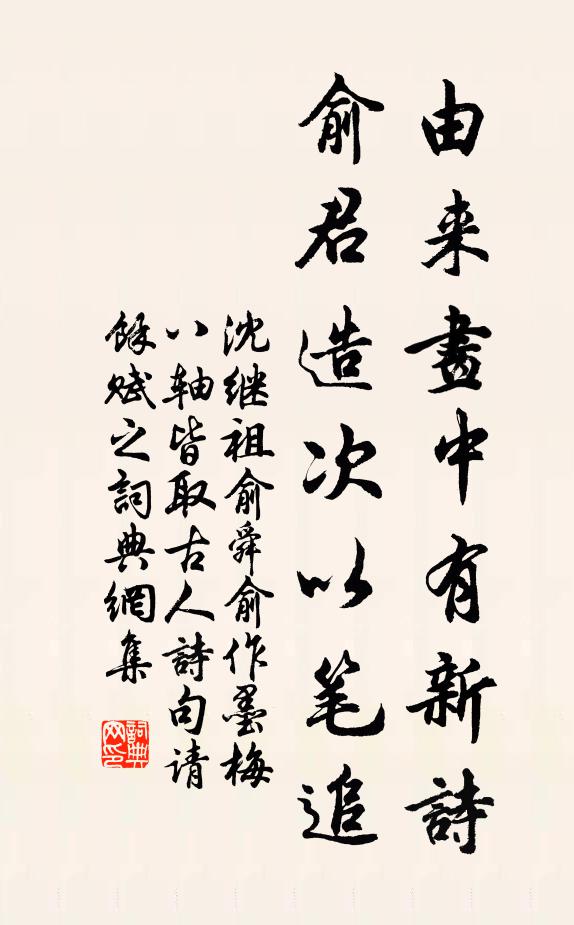 由来畫中有新詩
俞君造次以笔追
沈继祖俞舜俞作墨梅
八轴皆取古人詩句请
餘赋之詞典網集
詞典网印